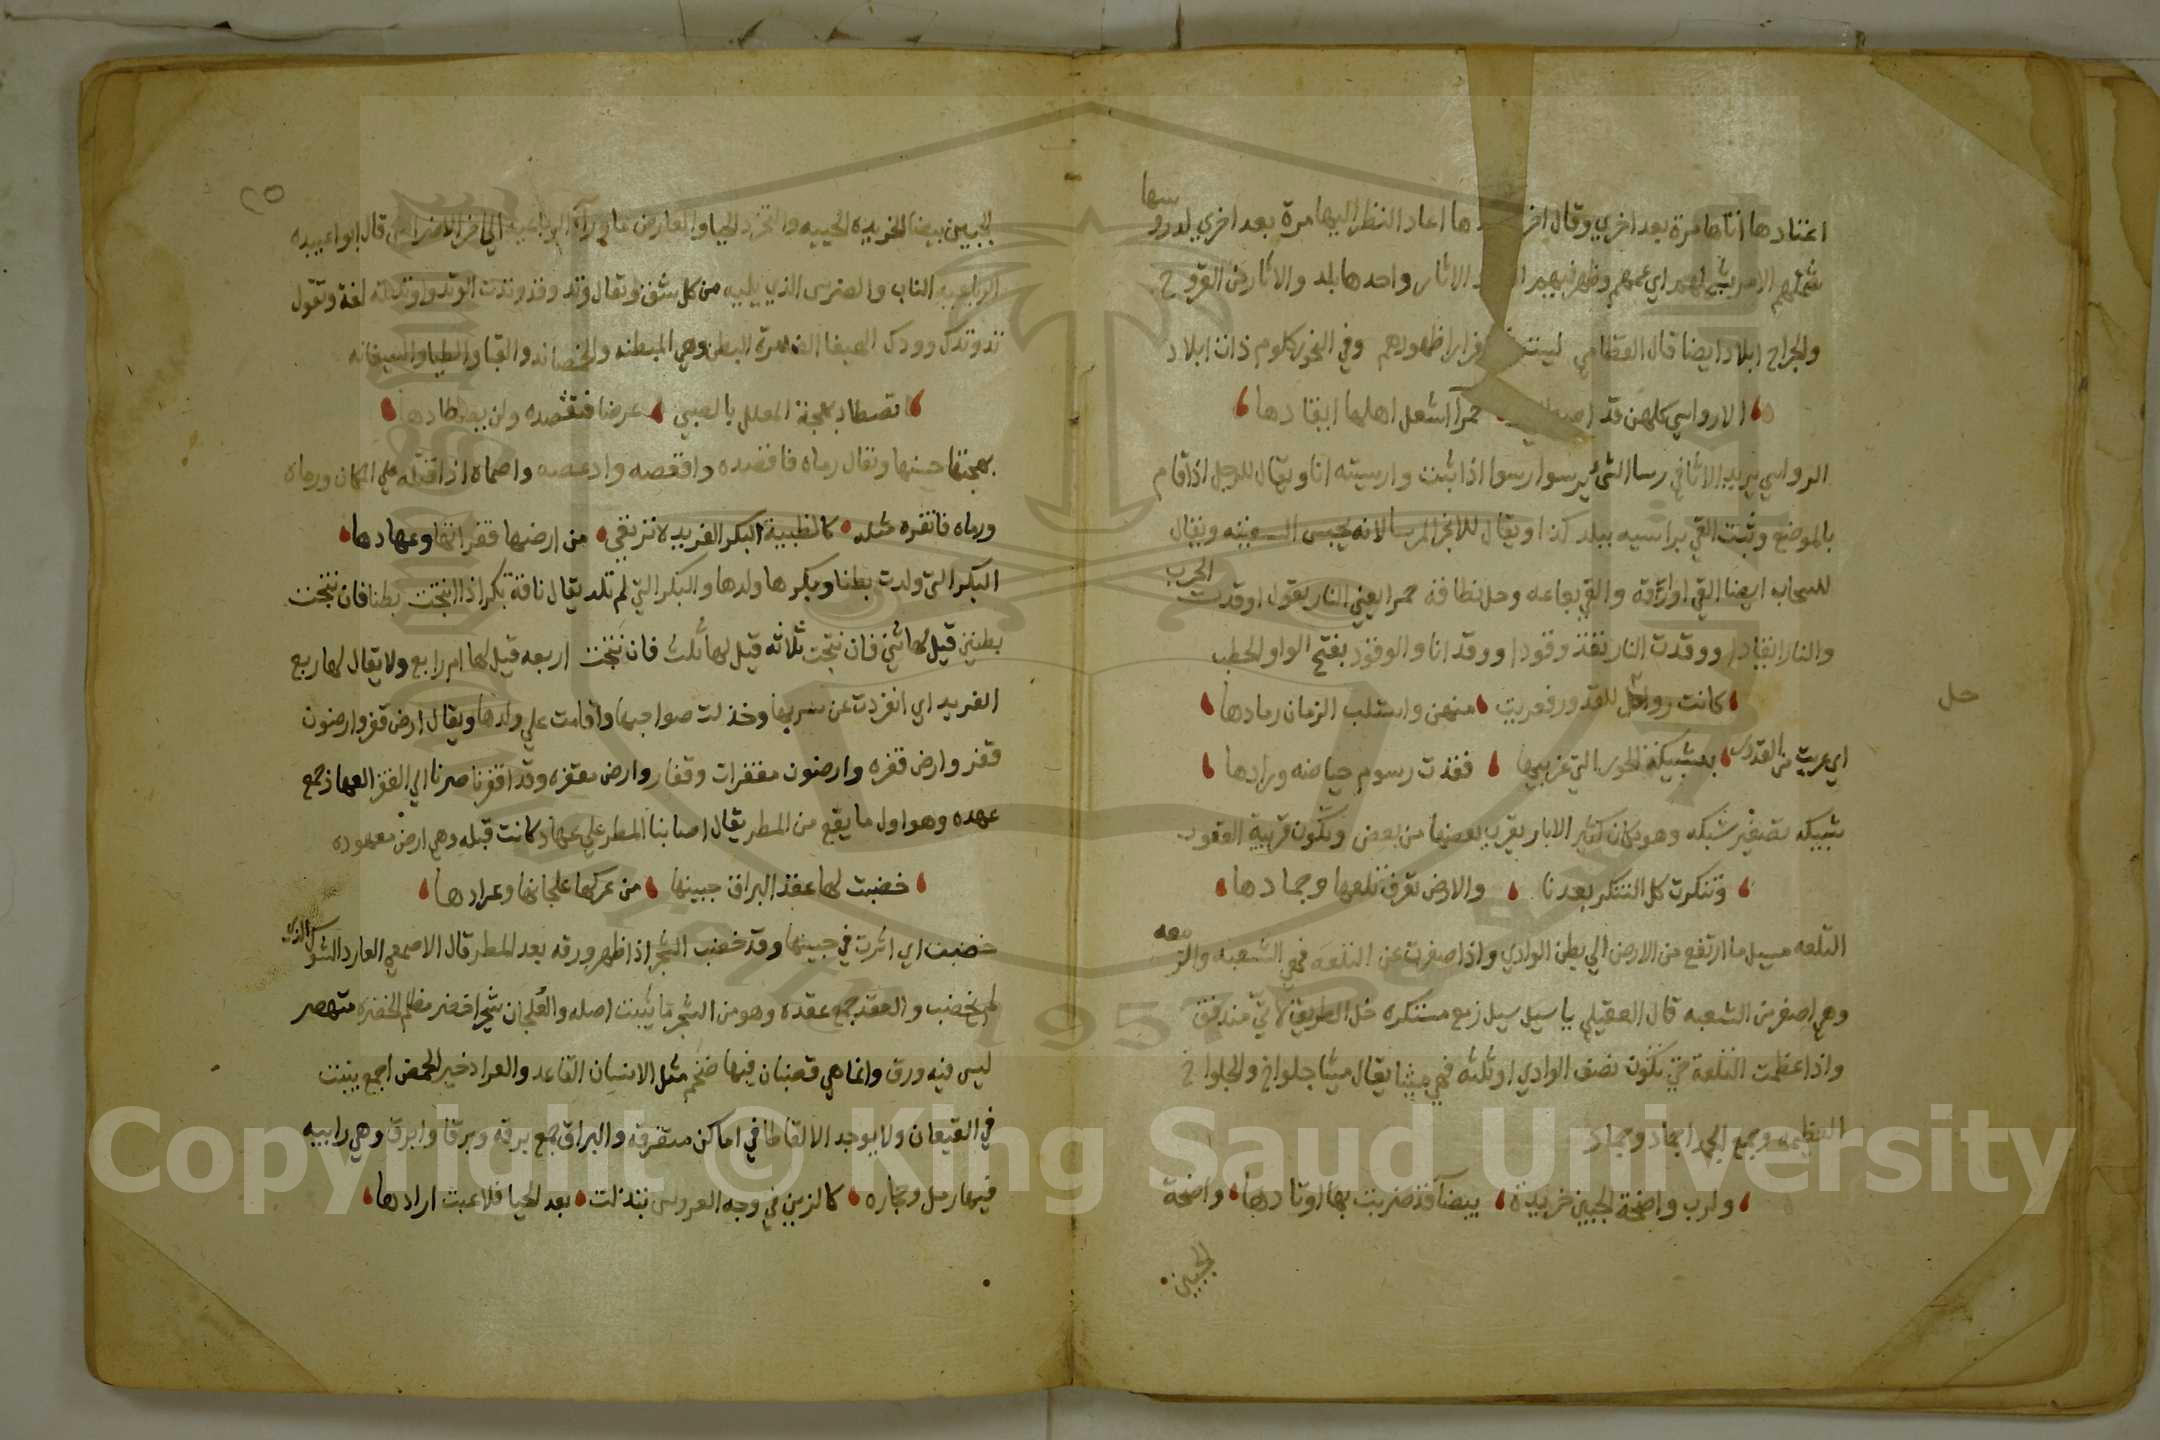 اعتادها اتاها مرة بعد اخري وقال اخر ها اعاد النظر اليها مرة بعد اخري لدروسها
شملهم الامر يشملهم اي عمهم وظهر فيهم الاثار واحدها بلد والاثار من القروح
والجراح ابلاد ايضا قال القطامي ليست فرارا ظهورهم وفي النحور كلوم ذات ابلاد
الا رواسي كلهن قد حمرا اشعل اهلها ايقادها
الرواسي يريد الاثافي رسا الشئ يرسوا رسوا اذا ثبت وارسيته انا ويقال للرجل اذا قام
بالموضع وثبت القي مراسيه ببلد كذا ويقال للانجر المرسا لانه يحبس السفينه ويقال
للسحاب ايضا القي اوراقه والقي بعاعه وحل نطاقه حمرا يعني النار يقول اوقدت الحرب
والنار ايقادا ووقدت النار تقد وقودا ووقد انا والوقود بفتح الواو الحطب
كانت رواحل للقدور فعريت منهن واستلب الزمان رمادها
حل
اي عريت من القدور بشبيكة الحور التي غربيها فقدت رسوم حياضه ورادها
شبيكه تصغير شبكه وهو مكان كثير الابار يقرب بعضها من بعض وتكون قريبة القعور
وتنكرت كل التنكر بعدنا والارض تعرف تلعها وجمادها
التلعه مسيل ما ارتفع من الارض الي بطن الوادي واذا صغرت عن التلعه فهي الشعبه والزمعه
وهي اصغر من الشعبه قال العقيلي يا سيل سيل زمع مستنكره خل الطريق لاتي مندفق
واذا عظمت التلعة حتي تكون نصف الوادي او ثلثه فهي ميثا يقال ميثا جلواخ والجلواخ
العظيمه وجمع الجمد اجماد وجماد
ولرب واضحة الجبين خريدة بيضا قد ضربت بها اوتادها واضحة
الجبين
٢٥
الجبين بيضا الخريده الحييه والتخرد الحيا والعارض ما ورا الرباعيه الي اخر الاضراس قال ابو عبيده
الرباعيه الناب والضرس الذي يليه من كل شق ويقال وتد وقد وتدت الوتد واوتدته لغة وتقول
تد وتدك وودك الهيفا الضامرة البطن وهي المبطنه والخمصانه والقبا والطيا والسيفانه
تصطاد بهجتها المعلل بالصبي عرضا فتقصده ولن يصطادها
بهجتها حسنها ويقال رماه فاقصده واقعصه وادعصه واصماه اذا قتله علي المكان ورماه
ورماه فاتقره مثله كالظبية البكر الفريد لا ترتقي من ارضها قفراتها وعهادها
البكر التي ولدت بطنا وبكرها ولدها والبكر التي لم تلد يقال ناقة بكر اذا انتجت بطنا فان نتجت
بطنين قيل لها ثني فان نتجت ثلاثه قيل لها ثلث فان نتجت اربعه قيل لها ام رابع ولا يقال لها ربع
الفريد اي انفردت عن سربها وخذلت صواحبها واقامت علي ولدها ويقال ارض قفر وارضون
قفر وارض قفره وارضون مقفرات وقفار وارض مقفره وقد اقفرنا صرنا الي القفر العهاد جمع
عهده وهو اول ما يقع من المطر يقال اصابنا المطر علي عهاد كانت قبله وهي ارض معهوده
خضبت لها عقد البراق جبينها من عركها علجانها وعرادها
خضبت اي اثرت في جبينها وقد خضب الشجر اذا ظهر ورقه بعد المطر قال الاصمعي العارد الشوك الذي
لم يخضب والعقد جمع عقده وهو من الشجر ما يثبت اصله والعلجان شجر اخضر مظلم الخضره متهصر
ليس فيه ورق وانما هي قضبان فيها ضخم مثل الانسان القاعد والعراد خير الحمض اجمع ينبت
في القيعان ولا يوجد الا لقاطا في اماكن متفرقه والبراق جمع برقه وبرقا وابرق وهي رابيه
فيها رمل وحجاره كالزين في وجه العروس تبذلت بعد الحيا فلاعبت ارادها
Copyright © King Saud University
1957